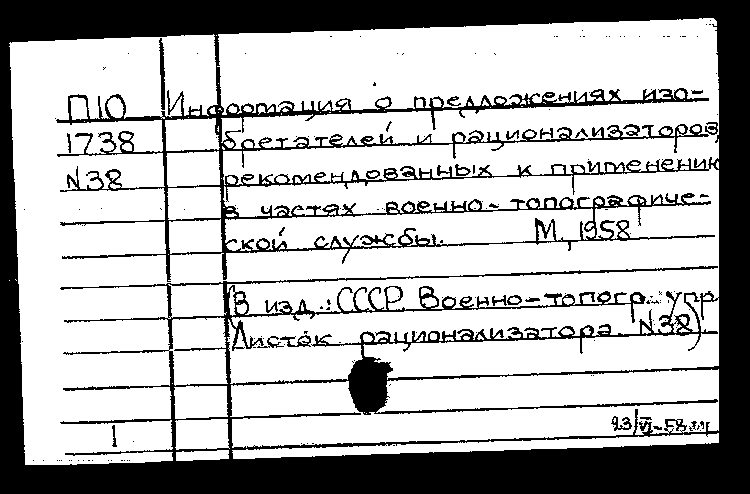 П10 Информация о предложениях изо-
1738 бретателей и рационализаторов,
N38 рекомендованных к применению
в частях военно-топографиче-
ской службы. М., 1958
(В изд.: СССР. Военно-топогр. упр.
Листок рационализатора. N38).
1 23/VI-58